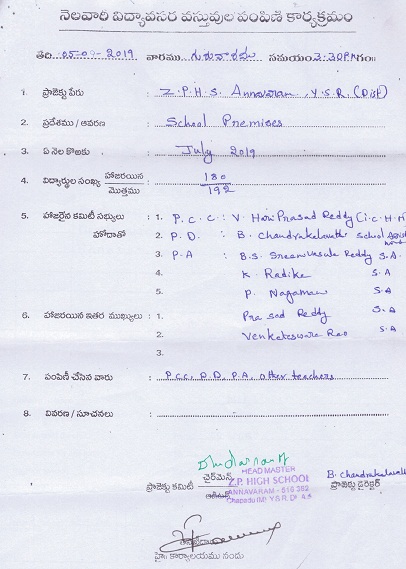 నెలవారి విద్యావసర వస్తువుల పంపిణి కార్యక్రమం
తేది: 2019 వారము గురువారము సమయం: 3:30PM గం॥
1. ప్రాజెక్టు పేరు : Z.P.H.S. Annavaram, Y.S.R. (Dist)
2. ప్రదేశము / ఆవరణ : School Premises
3. ఏ నెల కొఱకు : July 2019
4. విద్యార్థుల సంఖ్య హాజరయిన / మొత్తము : 180 / 192
5. హాజరైన కమిటీ సభ్యులు : 1. P.C.C : V. Hari Prasad Reddy (I.C.H.M)
హోదాతో 2. P.D. : B. Chandrakalavathi School Assistant
3. P.A : B.S. Sreenivasula Reddy S.A.
4. K. Radika S.A
5. P. Nagamani S.A
6. హాజరయిన ఇతర ముఖ్యులు : 1. Prasad Reddy S.A
2. Venkateswara Rao S.A
3.
7. పంపిణీ చేసిన వారు : P.C.C, P.D, P.A, other teachers
8. వివరణ / సూచనలు :
HEAD MASTER
ప్రాజెక్టు కమిటీ చైర్‌మెన్ Z.P. HIGH SCHOOL B. Chandrakalavathi
ANNAVARAM - 516 362 ప్రాజెక్టు డైరెక్టర్
Chapadu (M) Y.S.R. Dt. A.P.
హై॥ కార్యాలయము నందు